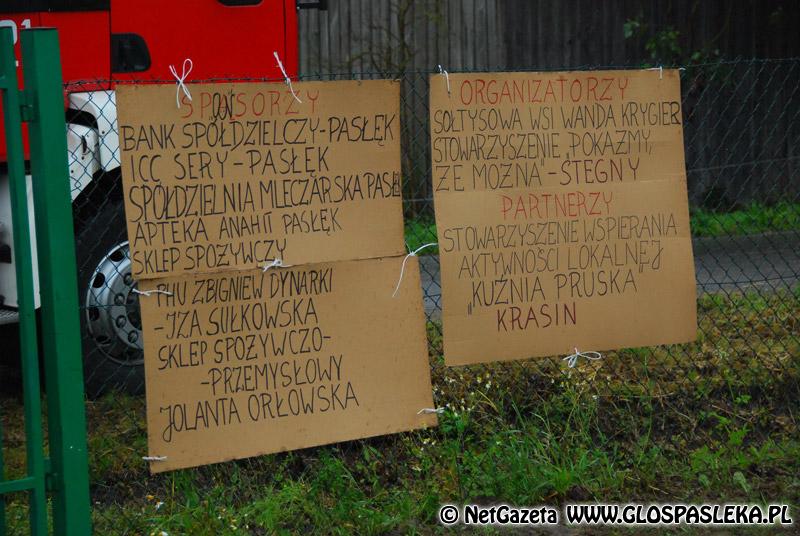 01
SPONSORZY
BANK SPÓŁDZIELCZY-PASŁĘK
ICC SERY-PASŁĘK
SPÓŁDZIELNIA MLECZARSKA PASŁ
APTEKA ANAHIT PASŁĘK
SKLEP SPOŻYWCZY
PHU ZBIGNIEW DYNARKI
-IZA SUŁKOWSKA
SKLEP SPOŻYWCZO-
-PRZEMYSŁOWY
JOLANTA ORŁOWSKA
ORGANIZATORZY
SOŁTYSOWA WSI WANDA KRYGIER
STOWARZYSZENIE „POKAŻMY,
ŻE MOŻNA"-STEGNY
PARTNERZY
STOWARZYSZENIE WSPIERANIA
AKTYWNOŚCI LOKALNEJ
„KUŹNIA PRUSKA"
KRASIN
© NetGazeta WWW.GLOSPASLEKA.PL